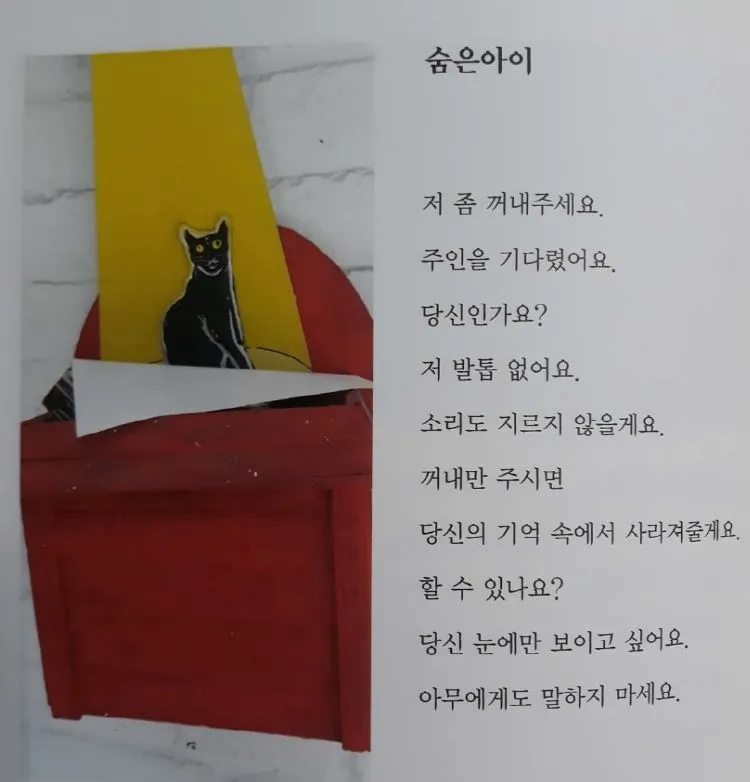 숨은아이
저 좀 꺼내주세요.
주인을 기다렸어요.
당신인가요?
저 발톱 없어요.
소리도 지르지 않을게요.
꺼내만 주시면
당신의 기억 속에서 사라져줄게요.
할 수 있나요?
당신 눈에만 보이고 싶어요.
아무에게도 말하지 마세요.